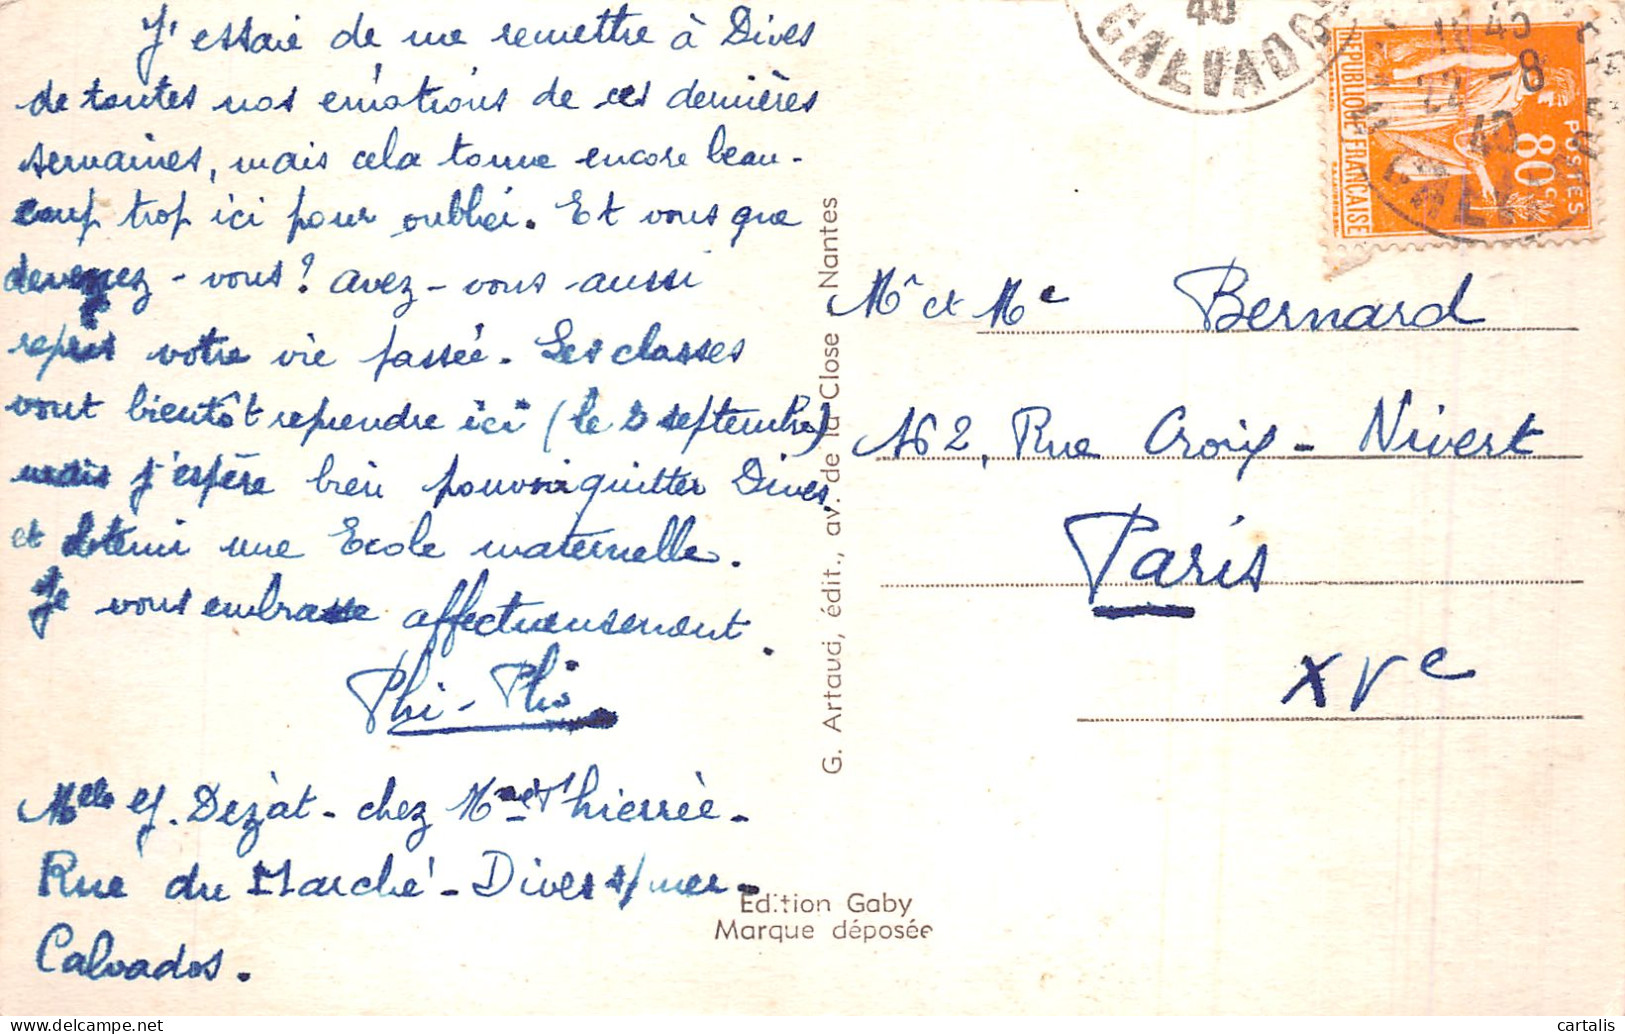 J'essaie de me remettre à Dives
de toutes nos émotions de ces dernières
semaines, mais cela tonne encore beau-
coup trop ici pour oublier. Et vous que
devenez-vous? avez-vous aussi
repris votre vie passée. Les classes
vont bientôt reprendre ici (le 2 septembre)
mais j'espère bien pouvoir quitter Dives
et obtenir une Ecole maternelle.
Je vous embrasse affectueusement.
Phi-Phi
Melle Y. Dezat - chez Mme Thierrée -
Rue du Marché - Dives s/mer -
Calvados.
G. Artaud, édit., av. de la Close Nantes
Edition Gaby
Marque déposée
40
CALVADOS
REPUBLIQUE FRANCAISE
POSTES
80c
22 -8
40
CALVADOS
Mr et Me Bernard
162, Rue Croix-Nivert
Paris
XVe
cartalis delcampe.net